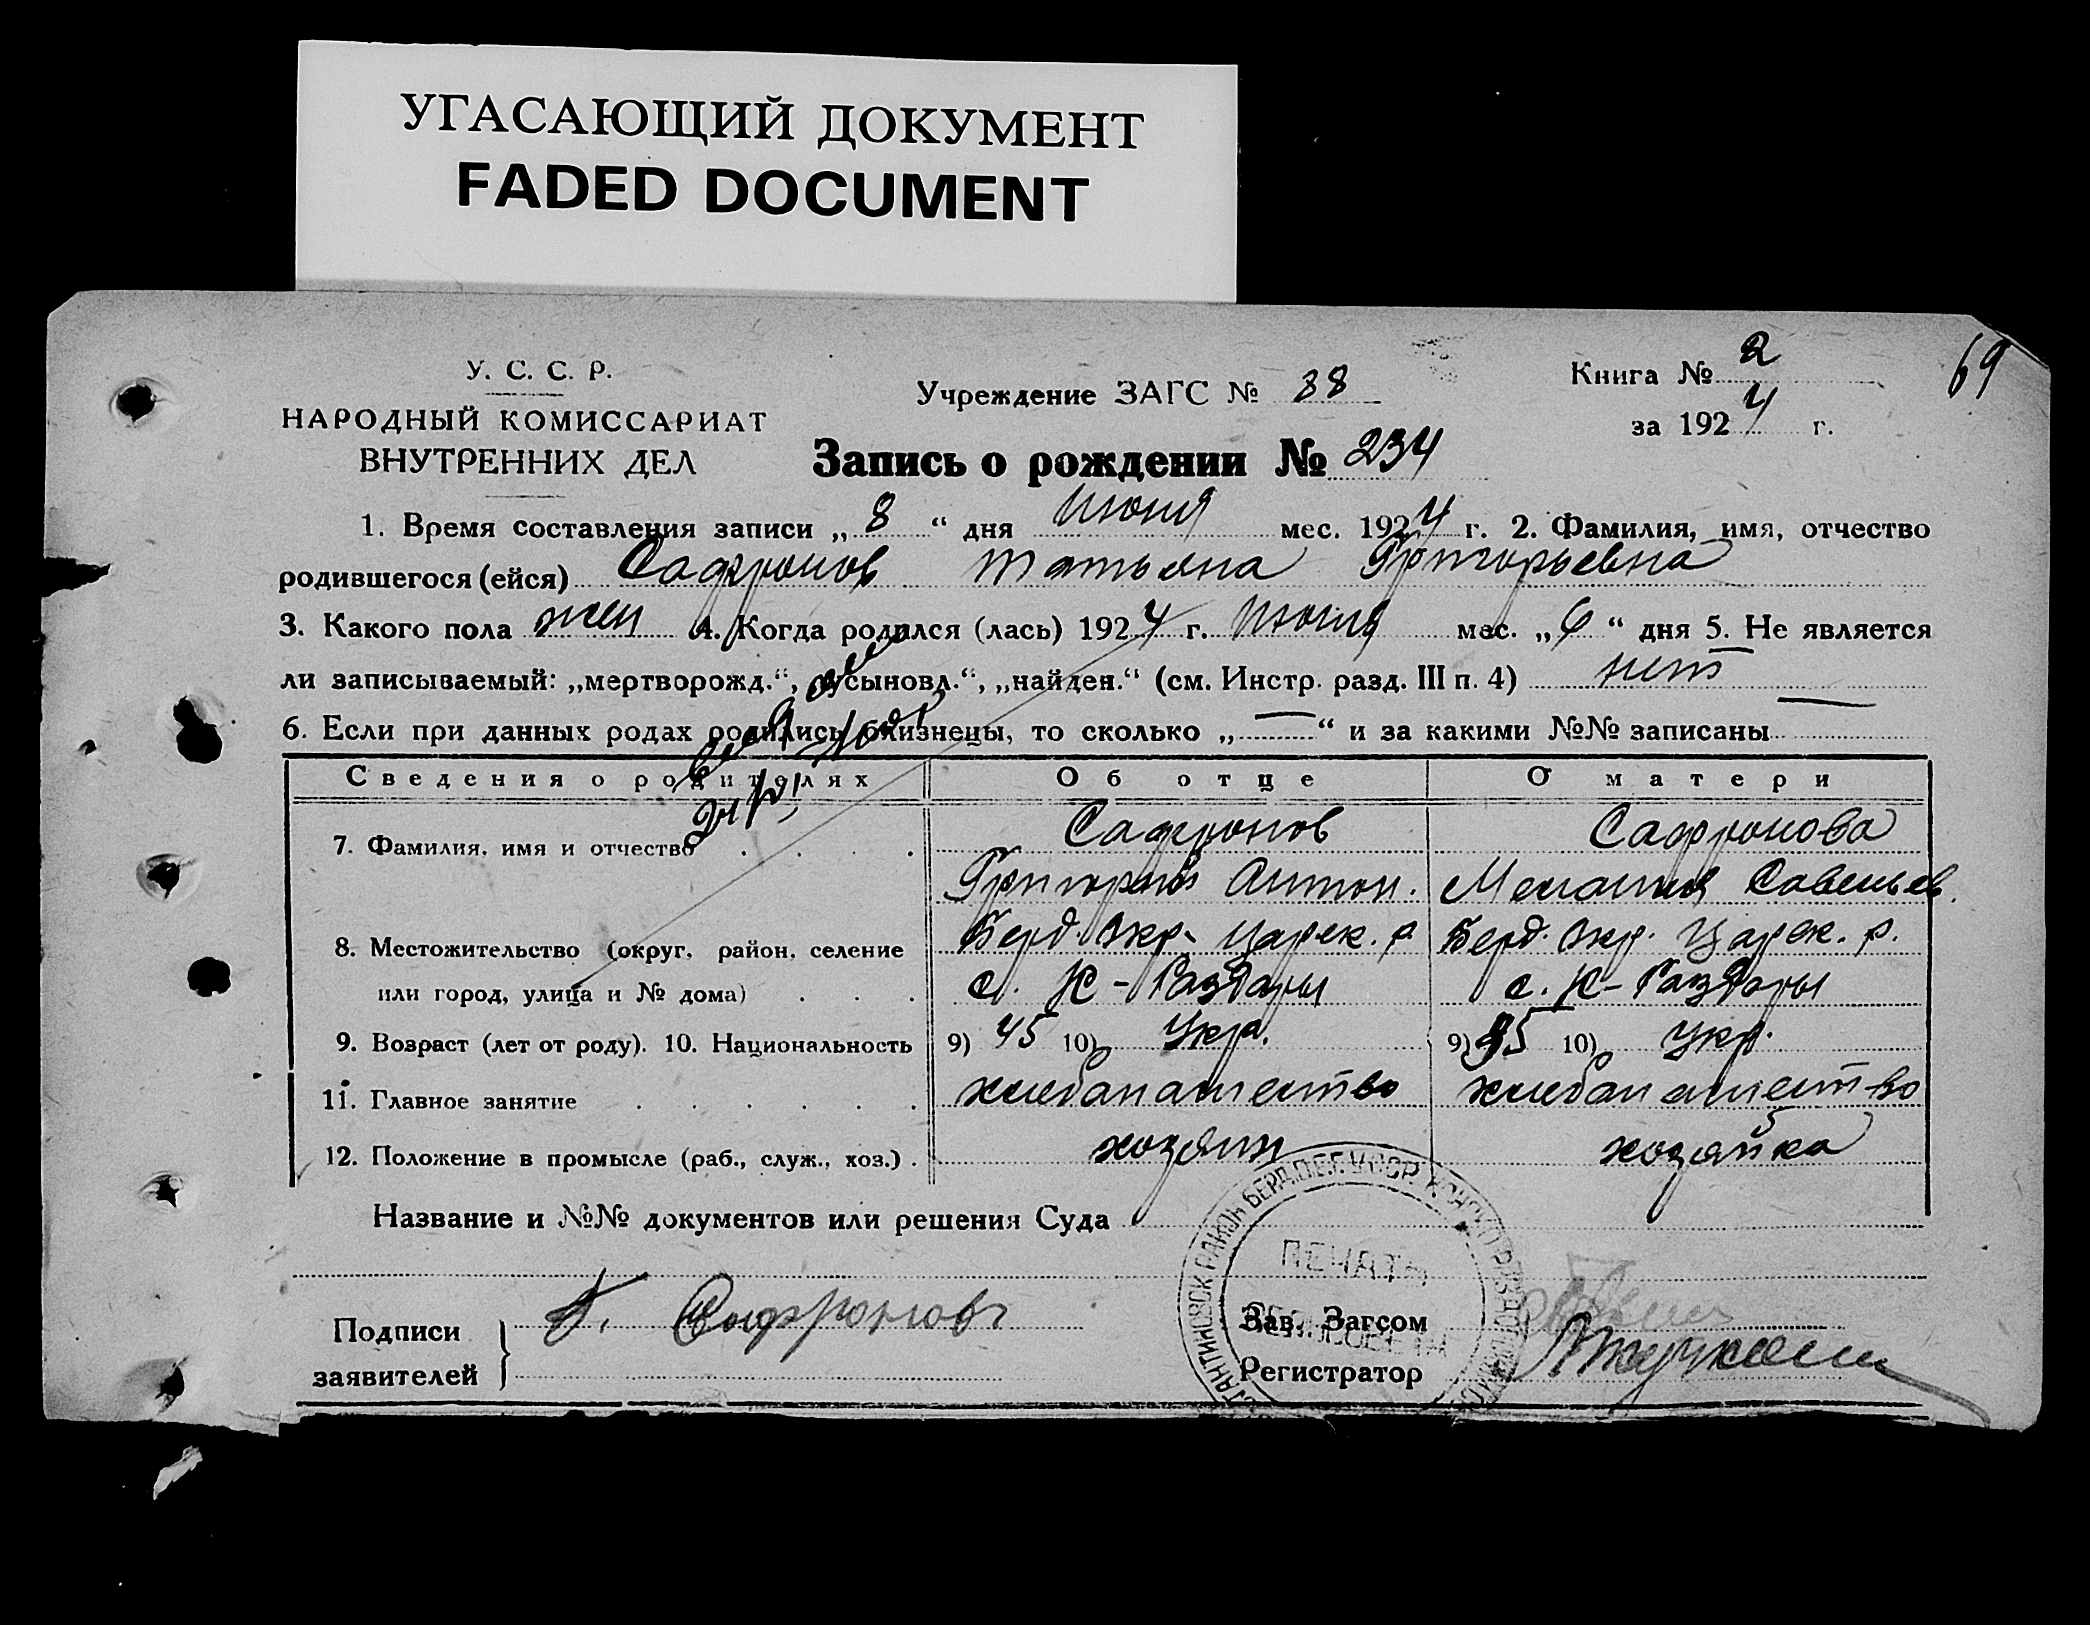 УГАСАЮЩИЙ ДОКУМЕНТ
FADED DOCUMENT
69
У. С. С. Р.
НАРОДНЫЙ КОМИССАРИАТ
ВНУТРЕННИХ ДЕЛ
Учреждение ЗАГС № 38
Книга № 2
за 1924 г.
Запись о рождении № 234
1. Время составления записи „8“ дня Июня мес. 1924 г. 2. Фамилия, имя, отчество
родившегося (ейся) Сафронов Татьяна Григорьевна
3. Какого пола жен 4. Когда родился (лась) 1924 г. Июня мес. „6“ дня 5. Не является
ли записываемый: „мертворожд.“, „усыновл.“, „найден.“ (см. Инстр. разд. III п. 4) нет
6. Если при данных родах родились близнецы, то сколько „—“ и за какими №№ записаны —
Сведения о родителях Об отце О матери
7. Фамилия, имя и отчество Сафронов Сафронова
Григорий Антон. Мелания Савельев.
8. Местожительство (округ, район, селение Берд. Окр. Царек. р. Берд. Окр. Царек. р.
или город, улица и № дома) с. К-Раздоры с. К-Раздоры
9. Возраст (лет от роду). 10. Национальность 9) 45 10) Укр. 9) 35 10) Укр.
11. Главное занятие хлебопашество хлебопашество
12. Положение в промысле (раб., служ., хоз.) хозяин хозяйка
Название и №№ документов или решения Суда
ПЕЧАТЬ
Подписи
заявителей
Г. Сафронов
Зав. Загсом
Регистратор